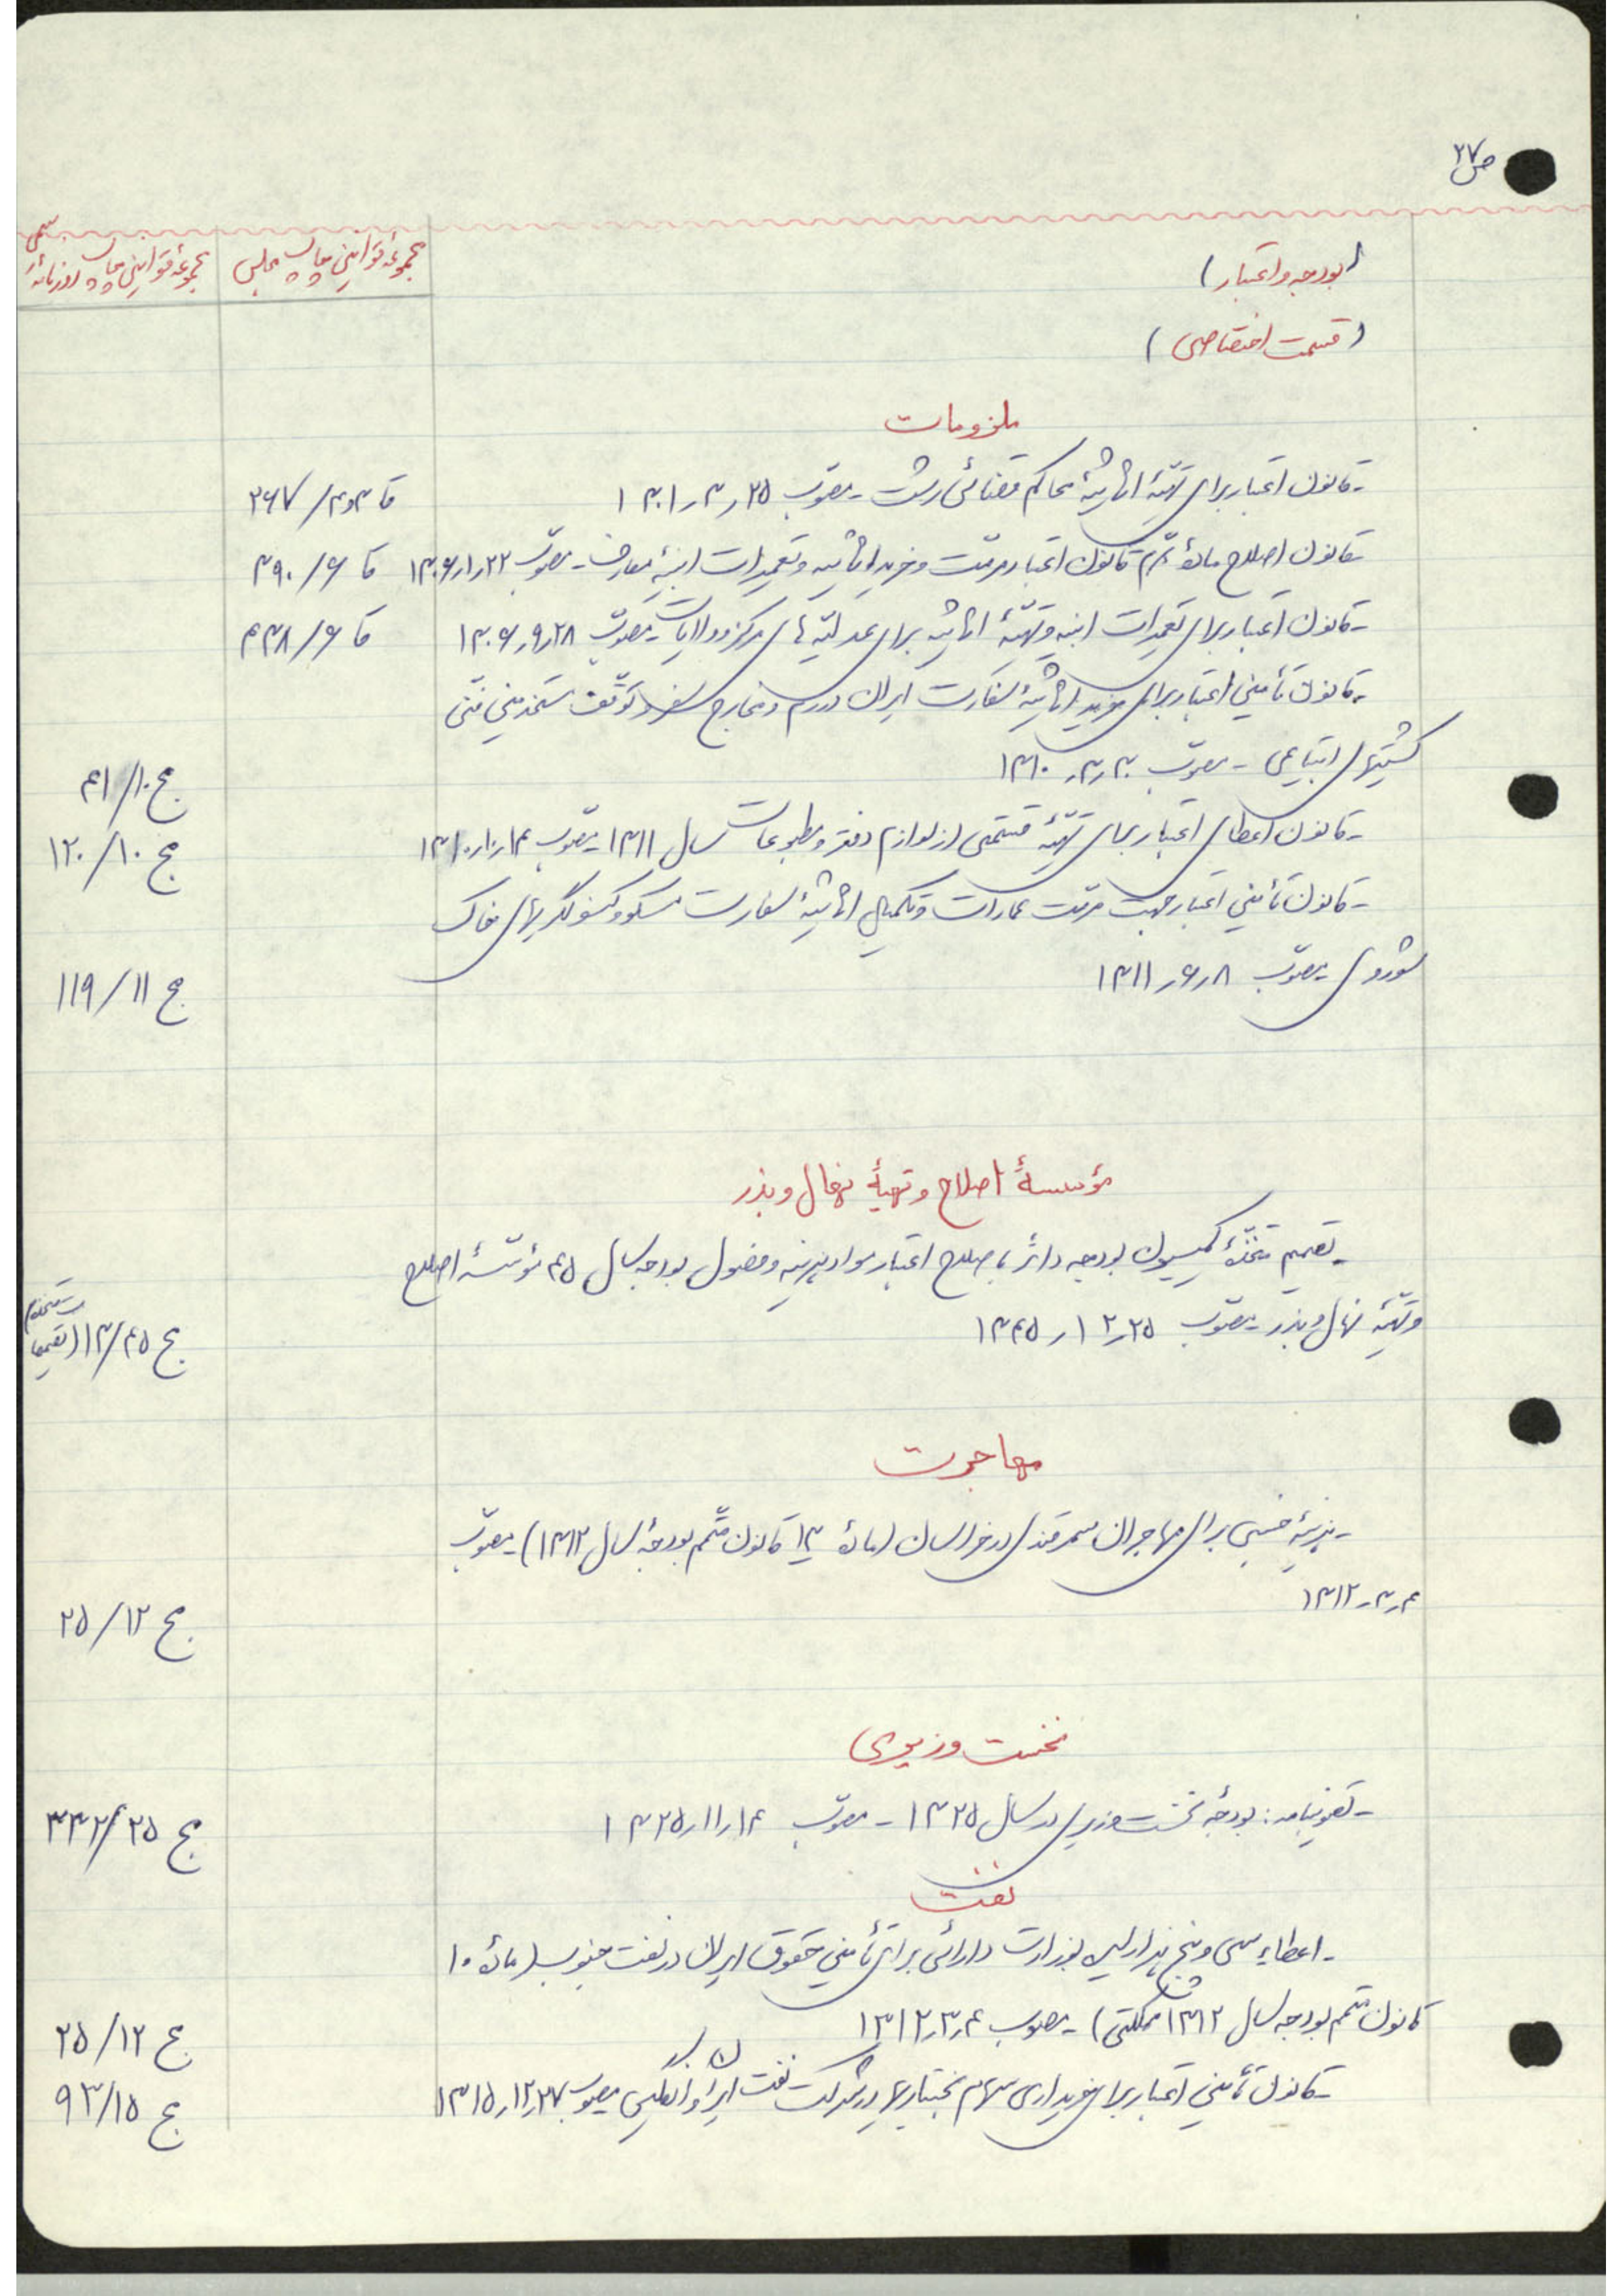 ص ۲۷
(بودجه و اعتبار)
مجموعهٔ قوانین چاپ مجلس
مجموعهٔ قوانین چاپ روزنامهٔ رسمی
(قسمت اختصاصی)
ملزومات
- قانون اعتبار برای تهیّهٔ اثاثیهٔ محاکم قضائی رشت - مصوّب ۲۵ر۳ر۱۳۰۱
قا ۳و۴/۲۶۷
- قانون اصلاح مادهٔ ۳ قانون اعتبار مرمّت و خرید اثاثیه و تعمیرات ابنیهٔ معارف - مصوّب ۲۲ر۱ر۱۳۰۶
قا ۶/۳۹۰
- قانون اعتبار برای تعمیرات ابنیه و تهیّهٔ اثاثیه برای عدلیّه های مرکز و ولایات - مصوّب ۲۸ر۹ر۱۳۰۶
قا ۶/۴۳۸
- قانون تأمین اعتبار برای خرید اثاثیهٔ سفارت ایران در رم و مخارج سفر و توقّف مستخدمین فنّی
کشتیهای ابتیاعی - مصوّب ۳۰ر۳ر۱۳۱۰
مج ۱۰/۴۱
- قانون اعطای اعتبار برای تهیّهٔ قسمتی از لوازم دفتر و مطبوعات سال ۱۳۱۱ - مصوّب ۱۴ر۱۰ر۱۳۱۰
مج ۱۰/۱۲۰
- قانون تأمین اعتبار جهت مرمّت عمارات و تکمیل اثاثیهٔ سفارت مسکو و کنسولگریهای خاک
شوروی - مصوّب ۸ر۶ر۱۳۱۱
مج ۱۱/۱۱۹
مؤسسهٔ اصلاح و تهیهٔ نهال و بذر
- تصمیم متّخذهٔ کمیسیون بودجه دائر باصلاح اعتبار مواد هزینه و فصول بودجه سال ۴۵ مؤسّسهٔ اصلاح
و تهیّهٔ نهال و بذر - مصوّب ۲۵ر۱۲ر۱۳۴۵
مج ۴۵/۱۳ (تصمیمات متخذه)
مهاجرت
- هزینهٔ جنسی برای مهاجران سمرقندی در خراسان (مادهٔ ۱۳ قانون متمّم بودجهٔ سال ۱۳۱۲) - مصوّب
۴ر۳ر۱۳۱۲
مج ۱۲/۲۵
نخست وزیری
- تصویبنامه: بودجهٔ نخست وزیری در سال ۱۳۲۵ - مصوّب ۱۴ر۱۱ر۱۳۲۵
مج ۲۵/۳۳۲
نفت
- اعطاء سی و پنج هزار لیره بوزارت دارائی برای تأمین حقوق ایران در نفت جنوب (مادهٔ ۱۰
قانون متمّم بودجه سال ۱۳۱۲ مملکتی) - مصوب ۴ر۳ر۱۳۱۲
مج ۱۲/۲۵
- قانون تأمین اعتبار برای خریداری سهام بختیاریها در شرکت نفت ایران و انگلیس - مصوب ۲۷ر۱۲ر۱۳۱۵
مج ۱۵/۹۳